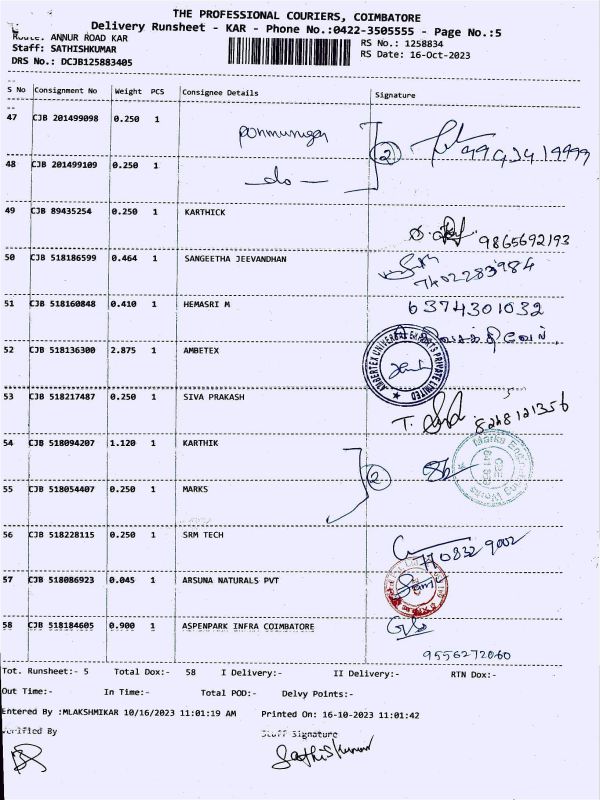 THE PROFESSIONAL COURIERS, COIMBATORE
Delivery Runsheet - KAR - Phone No.:0422-3505555 - Page No.:5
Route: ANNUR ROAD KAR RS No.: 1258834
Staff: SATHISHKUMAR RS Date: 16-Oct-2023
DRS No.: DCJB125883405
S No Consignment No Weight PCS Consignee Details Signature
47 CJB 201499098 0.250 1
48 CJB 201499109 0.250 1 -do- 2
49 CJB 89435254 0.250 1 KARTHICK 9865692193
50 CJB 518186599 0.464 1 SANGEETHA JEEVANDHAN 7402283984
51 CJB 518160848 0.410 1 HEMASRI M 6374301032
52 CJB 518136300 2.875 1 AMBETEX AMBERTEX UNIVERSAL EXPORTS PRIVATE LIMITED
53 CJB 518217487 0.250 1 SIVA PRAKASH 8248121356
54 CJB 518094207 1.120 1 KARTHIK 2
55 CJB 518054407 0.250 1 MARKS
56 CJB 518228115 0.250 1 SRM TECH
57 CJB 518086923 0.045 1 ARSUNA NATURALS PVT
58 CJB 518184605 0.900 1 ASPENPARK INFRA COIMBATORE
9556272060
Tot. Runsheet:- 5 Total Dox:- 58 I Delivery:- II Delivery:- RTN Dox:-
Out Time:- In Time:- Total POD:- Delvy Points:-
Entered By :MLAKSHMIKAR 10/16/2023 11:01:19 AM Printed On: 16-10-2023 11:01:42
Verified By Staff Signature
Sathiskumar